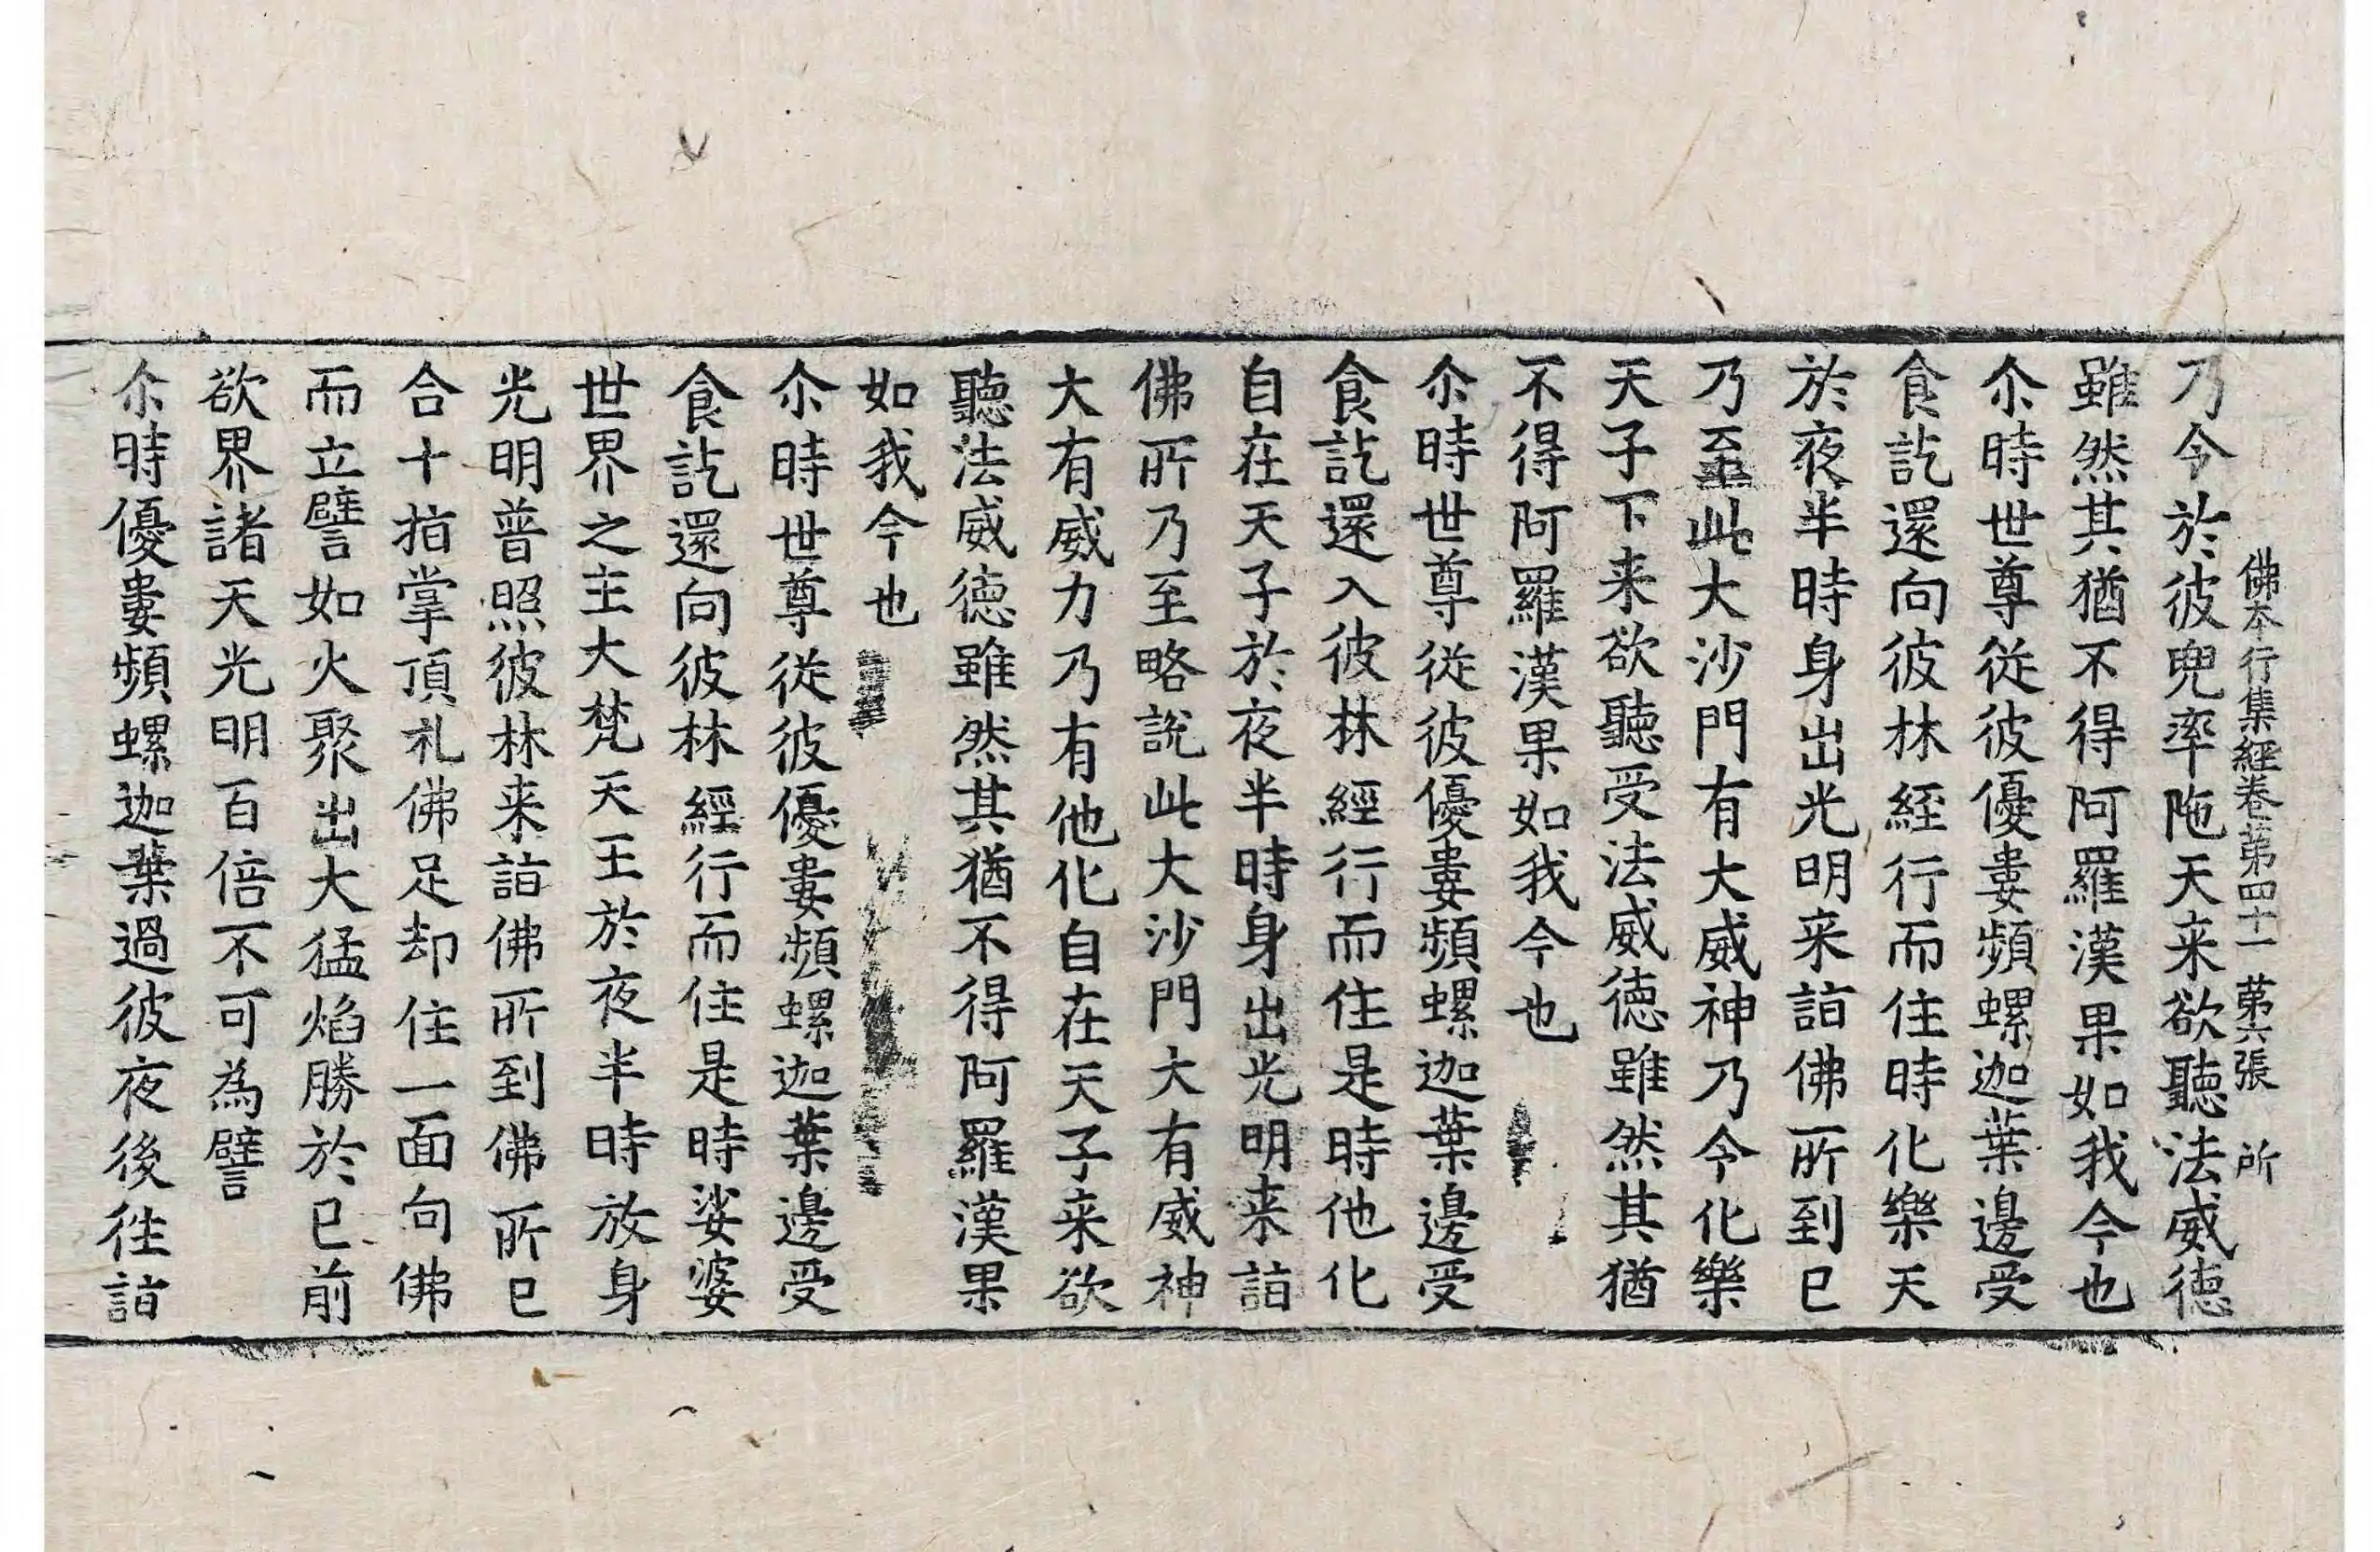 佛本行集經卷第四十一 第六張 所
乃令於彼兜率陁天来欲聽法威徳
雖然其猶不得阿羅漢果如我今也
尒時世尊従彼優婁頻螺迦葉邊受
食訖還向彼林経行而住時化樂天
於夜半時身出光明来詣佛所到已
乃至此大沙門有大威神乃令化樂
天子下来欲聽受法威徳雖然其猶
不得阿羅漢果如我今也
尒時世尊従彼優婁頻螺迦葉邊受
食訖還入彼林經行而住是時他化
自在天子於夜半時身出光明来詣
佛所乃至略説此大沙門大有威神
大有威力乃有他化自在天子来欲
聽法威徳雖然其猶不得阿羅漢果
如我今也
尒時世尊従彼優婁頻螺迦葉邊受
食訖還向彼林經行而住是時娑婆
世界之主大梵天王於夜半時放身
光明普照彼林来詣佛所到佛所已
合十指掌頂礼佛足却住一面向佛
而立譬如火聚出大猛焰勝於已前
欲界諸天光明百倍不可為譬
尒時優婁頻螺迦葉過彼夜後徃詣